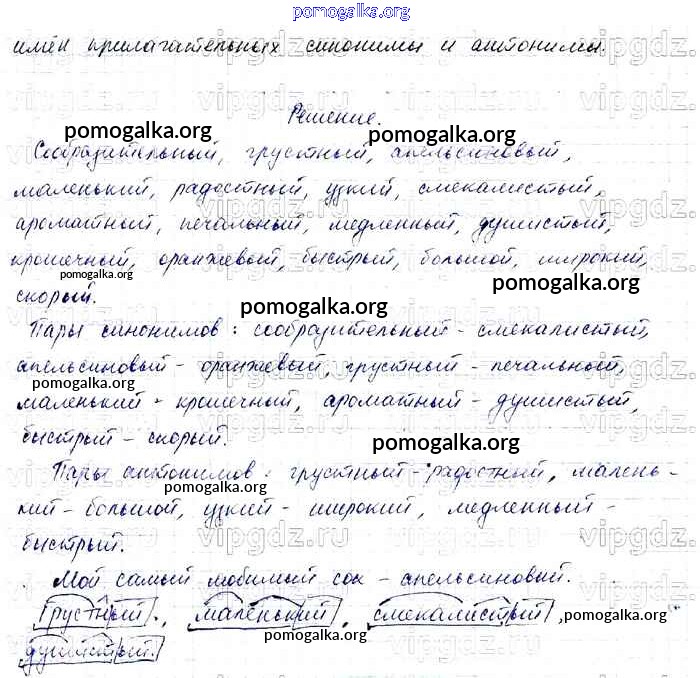 pomogalka.org
имён прилагательных синонимы и антонимы.
Решение.
pomogalka.org pomogalka.org
Сообразительный, грустный, апельсиновый,
маленький, радостный, узкий, смекалистый,
ароматный, печальный, медленный, душистый,
крошечный, оранжевый, быстрый, большой, широкий,
pomogalka.org pomogalka.org
скорый.
pomogalka.org
Пары синонимов: сообразительный - смекалистый,
апельсиновый - оранжевый, грустный - печальный,
pomogalka.org
маленький - крошечный, ароматный - душистый,
быстрый - скорый.
pomogalka.org
Пары антонимов: грустный - радостный, малень-
pomogalka.org
кий - большой, узкий - широкий, медленный -
быстрый.
Мой самый любимый сок - апельсиновый.
грустный, маленький, смекалистый,
pomogalka.org
pomogalka.org
душистый.
vipgdz.ru